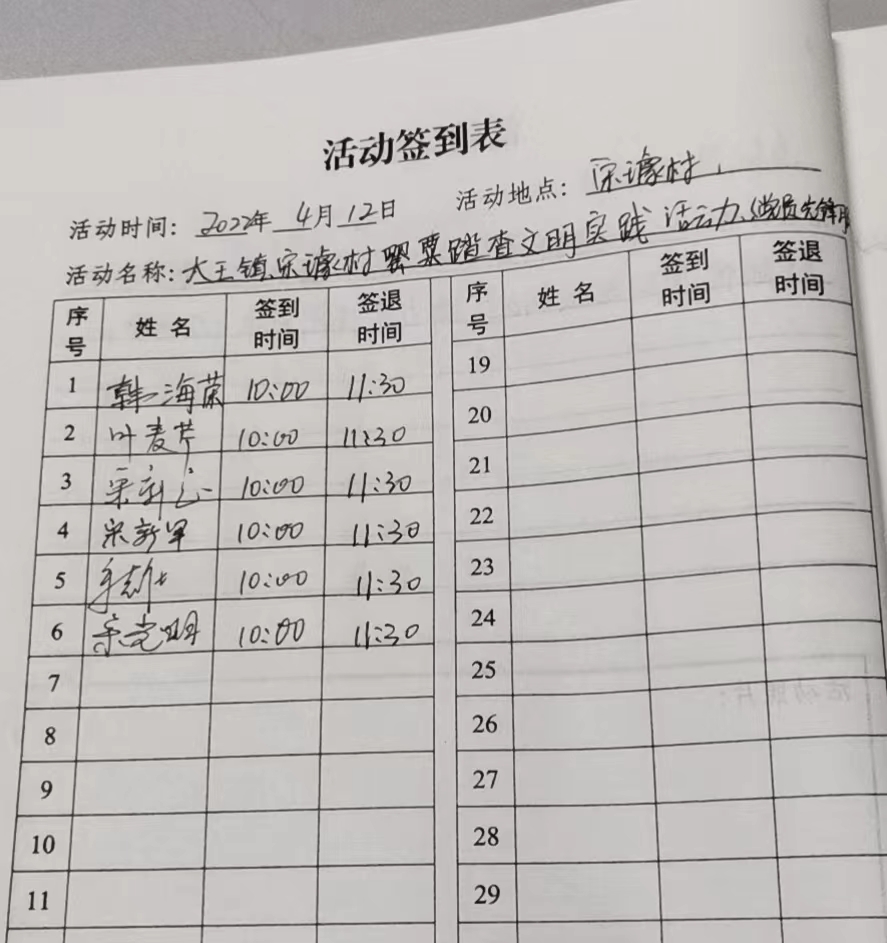 活动签到表
活动时间: 2022年 4月12日 活动地点: 宋壕村
活动名称: 大王镇宋壕村罂粟踏查文明实践活动(党员先锋
序号 姓名 签到时间 签退时间 序号 姓名 签到时间 签退时间
1 韩海荣 10:00 11:30 19
2 叶麦芹 10:00 11:30 20
3 宋新 10:00 11:30 21
4 宋新军 10:00 11:30 22
5 10:00 11:30 23
6 宋党明 10:00 11:30 24
7 25
8 26
9 27
10 28
11 29